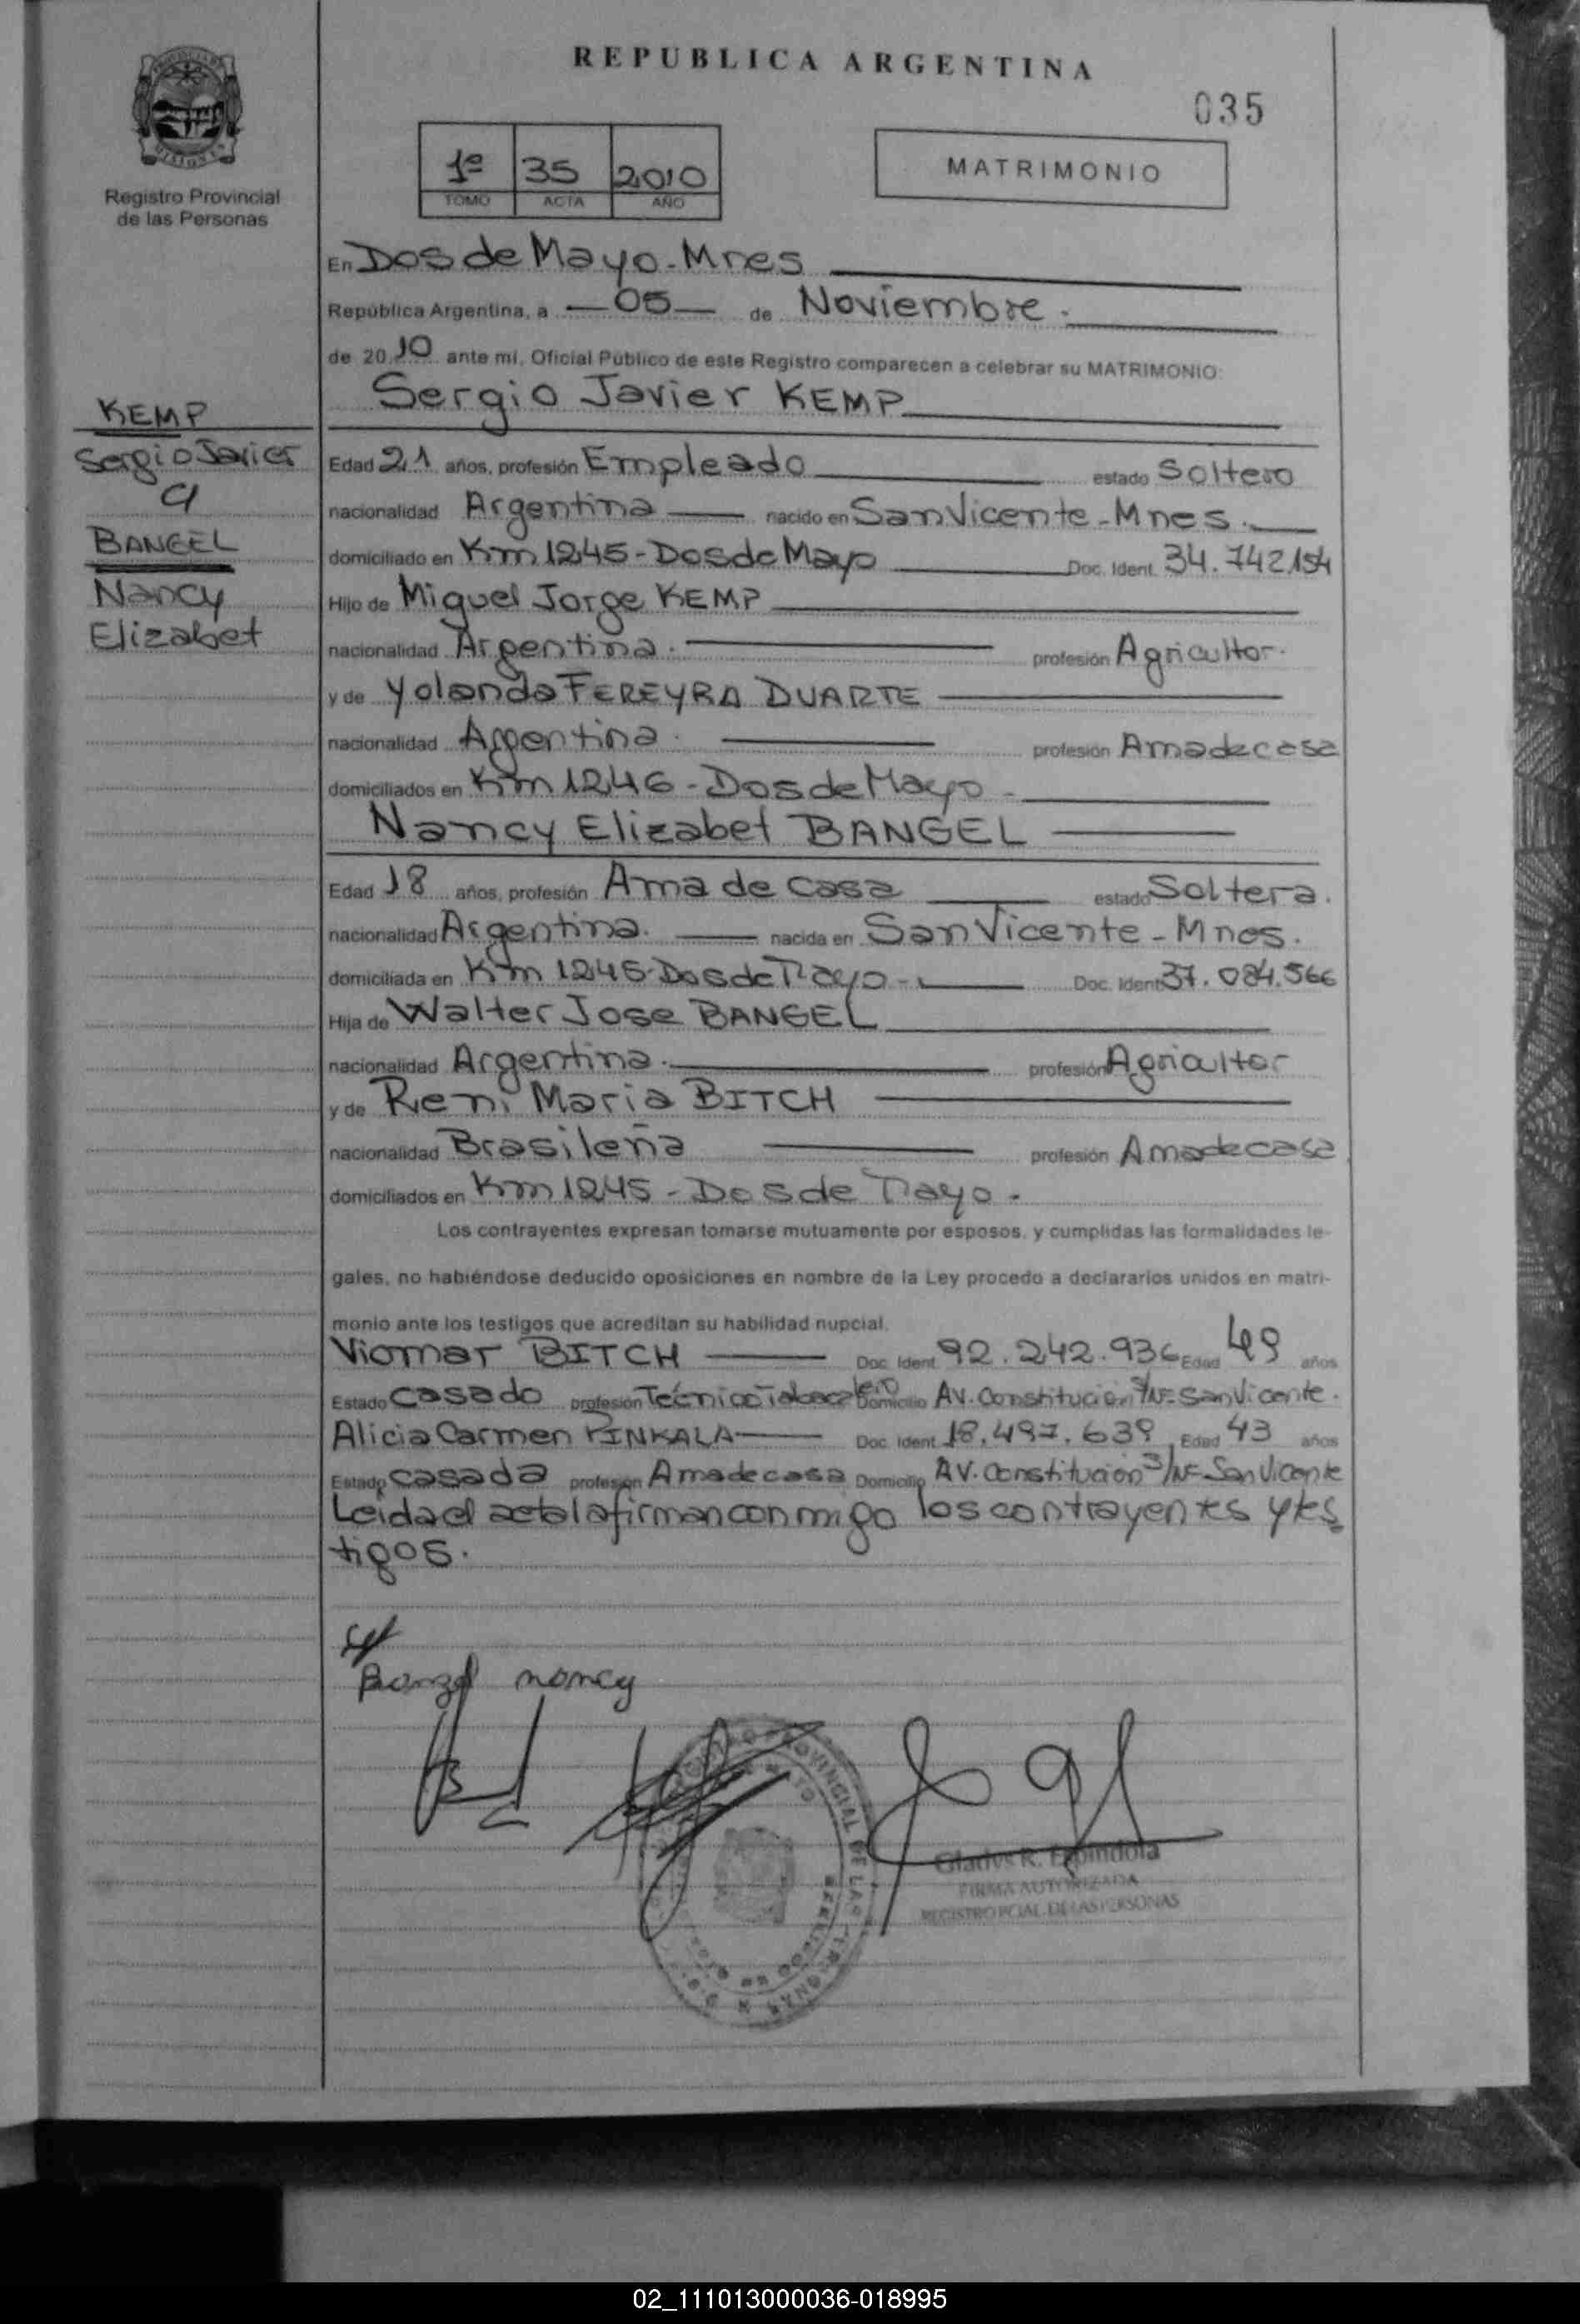 REPUBLICA ARGENTINA
035
Registro Provincial
de las Personas
1º 35 2010
TOMO ACTA AÑO
MATRIMONIO
En Dos de Mayo - Mnes
República Argentina, a 05 de Noviembre.
de 2010 ante mí, Oficial Público de este Registro comparecen a celebrar su MATRIMONIO:
Sergio Javier KEMP
KEMP
Sergio Javier
c/
BANGEL
Nancy
Elizabet
Edad 21 años, profesión Empleado estado Soltero
nacionalidad Argentina nacido en San Vicente - Mnes.
domiciliado en Km 1245 - Dos de Mayo Doc. Ident. 34.742.154
Hijo de Miguel Jorge KEMP
nacionalidad Argentina. profesión Agricultor.
y de Yolanda FEREYRA DUARTE
nacionalidad Argentina. profesión Ama de casa
domiciliados en Km 1246 - Dos de Mayo -
Nancy Elizabet BANGEL
Edad 18 años, profesión Ama de casa estado Soltera.
nacionalidad Argentina. nacida en San Vicente - Mnes.
domiciliada en Km 1245 - Dos de Mayo - Doc. Ident. 37.084.566
Hija de Walter Jose BANGEL
nacionalidad Argentina. profesión Agricultor
y de Reni Maria BITCH
nacionalidad Brasileña profesión Ama de casa
domiciliados en Km 1245 - Dos de Mayo.
Los contrayentes expresan tomarse mutuamente por esposos, y cumplidas las formalidades le-
gales, no habiéndose deducido oposiciones en nombre de la Ley procedo a declararlos unidos en matri-
monio ante los testigos que acreditan su habilidad nupcial.
Viomar BITCH Doc. Ident. 92.242.936 Edad 49 años
Estado Casado profesión Técnico Tabacalero Domicilio AV. Constitución S/Nº San Vicente.
Alicia Carmen KINKALA Doc. Ident. 18.497.639 Edad 43 años
Estado Casada profesión Ama de casa Domicilio AV. Constitución S/Nº San Vicente
Leida el acta la firman conmigo los contrayentes y tes
tigos.
Bangel nancy
Gladys R. Espindola
FIRMA AUTORIZADA
REGISTRO PCIAL. DE LAS PERSONAS
02_111013000036-018995